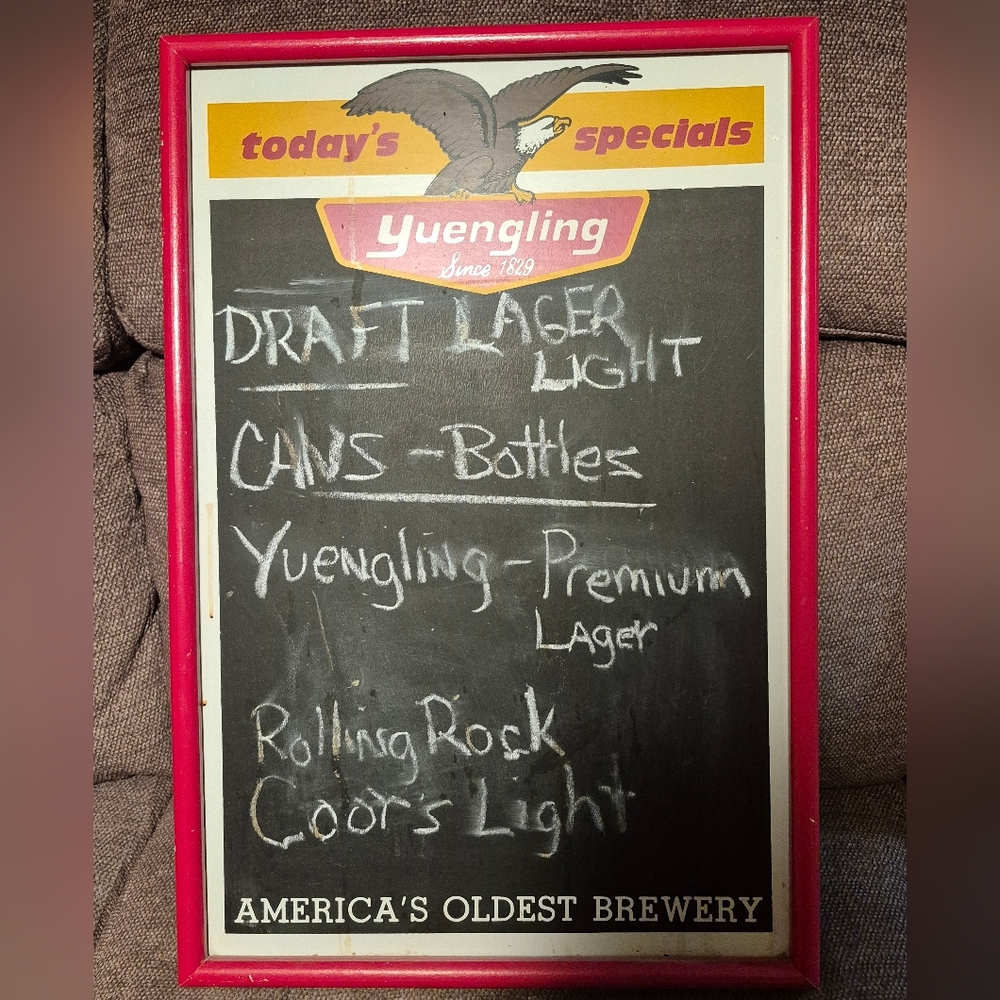 today's specials
Yuengling
Since 1829
DRAFT LAGER
LIGHT
CANS - Bottles
Yuengling - Premium
Lager
Rolling Rock
Coor's Light
AMERICA'S OLDEST BREWERY